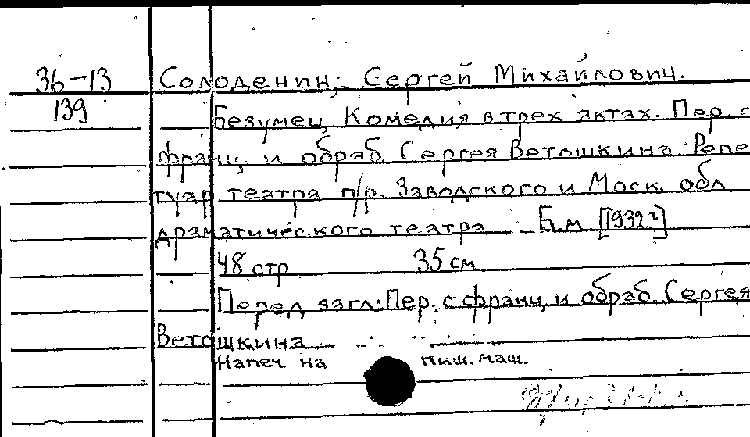 36-13 Солоденин, Сергей Михайлович.
139 Безумец, Комедия в трех актах. Пер. с
франц. и обраб. Сергея Ветошкина. Репе
туар театра п/р. Заводского и Моск. обл
драматического театра. Б.м. [1939?]
48 стр 35 см
Перед загл: Пер. с франц. и обраб. Сергея
Ветошкина
Напеч на пиш. маш.